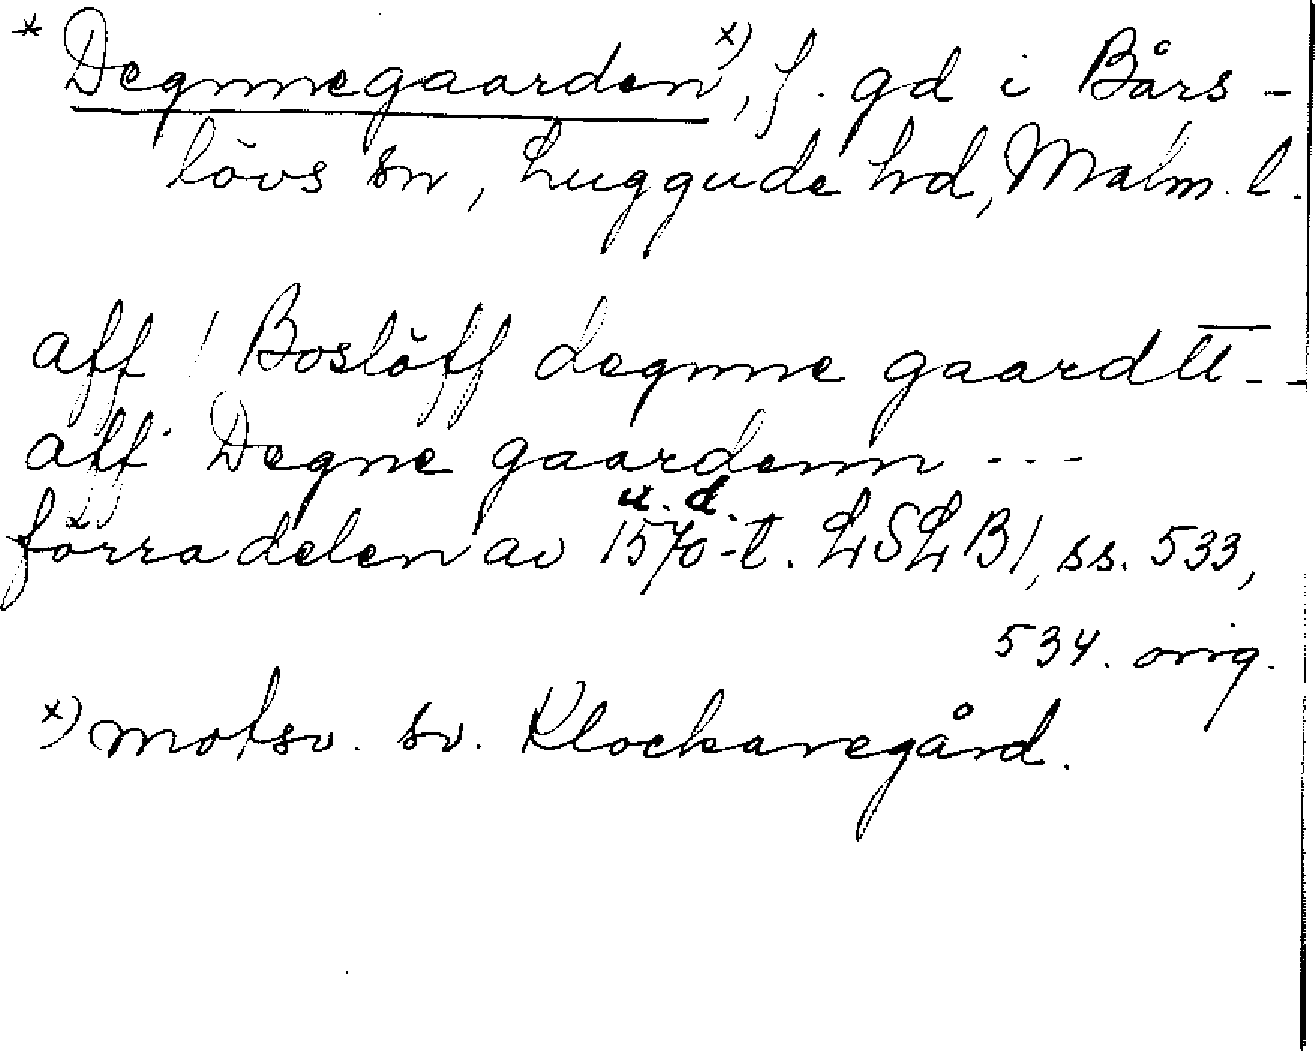 * Degnnegaarden x), f. gd i Bårs-
lövs sn, Luggude hd, Malm. l.
aff / Boslöff degnne gaardtt - -
aff Degne gaardenn - - -
u. d.
förra delen av 1570-t. LSLB 1, ss. 533,
534. orig.
x) motsv. sv. Klockaregård.